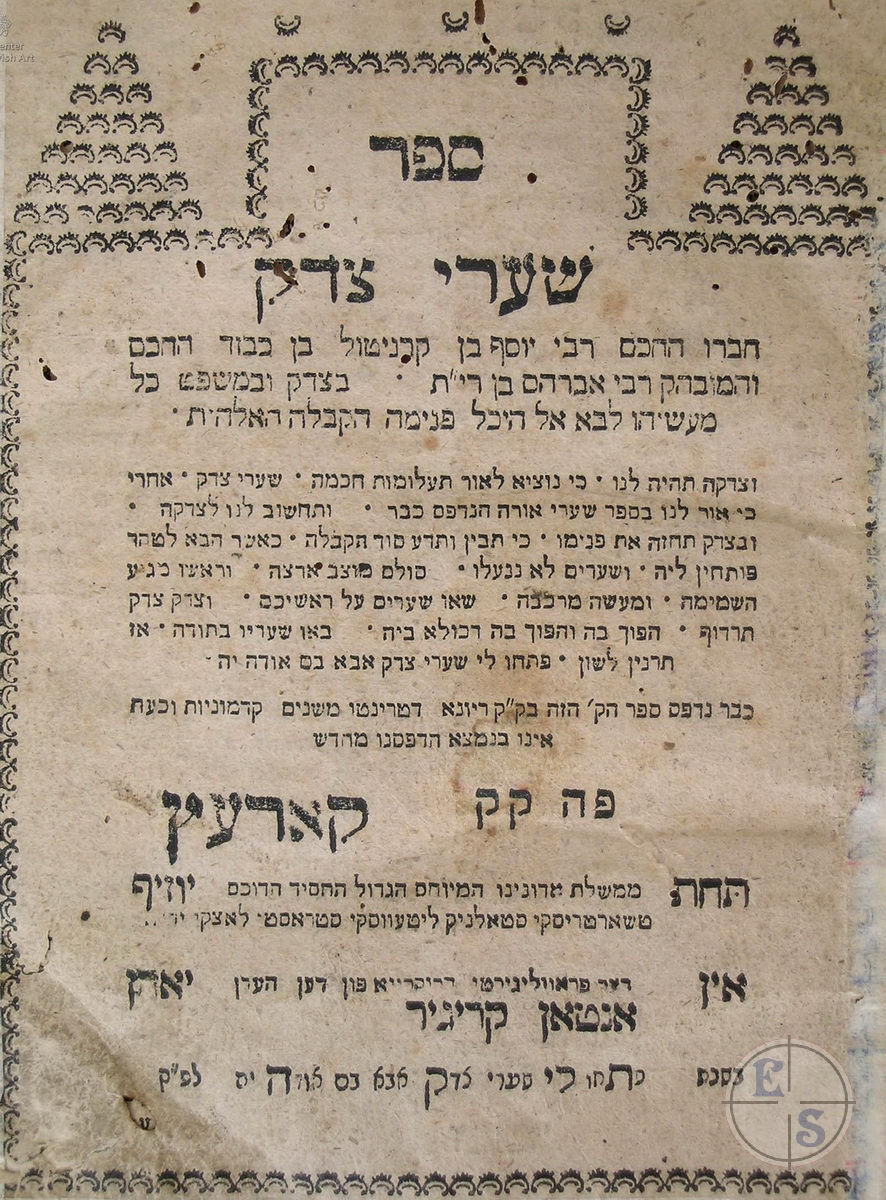 ספר
שערי צדק
חברו החכם רבי יוסף בן קרניטול בן כבוד החכם
והמובהק רבי אברהם בן רי״ת · בצדק ובמשפט כל
מעשיהו לבא אל היכל פנימה הקבלה האלהית ·
וצדקה תהיה לנו · כי נוציא לאור תעלומות חכמה · שערי צדק · אחרי
כי אור לנו בספר שערי אורה הנדפס כבר · ותחשוב לנו לצדקה ·
ובצדק תחזה את פנימו · כי תבין ותדע סוד הקבלה · כאשר הבא לטהר
פותחין ליה · ושערים לא ננעלו · סולם מוצב ארצה · וראשו מגיע
השמימה · ומעשה מרכבה · שאו שערים על ראשיכם · וצדק צדק
תרדוף · הפוך בה והפוך בה דכולא ביה · באו שעריו בתודה · אז
תרנין לשון · פתחו לי שערי צדק אבא בם אודה יה ·
כבר נדפס ספר הק׳ הזה בק״ק ריווא דטרינטו משנים קדמוניות וכעת
אינו בנמצא הדפסנו מחדש
פה קק קארעץ
תחת ממשלת אדונינו המיוחס הגדול החסיד הדוכס יוזיף
טשארטריסקי סטאלניק ליטעווסקי סטראסטי לאצקי
אין דער פראווליגירטי דריקרייא פון דען העדן יאהן
אנטאן קריגיר
בשנת פתחו לי שערי צדק אבא בם אודה יה לפ״ק
E S